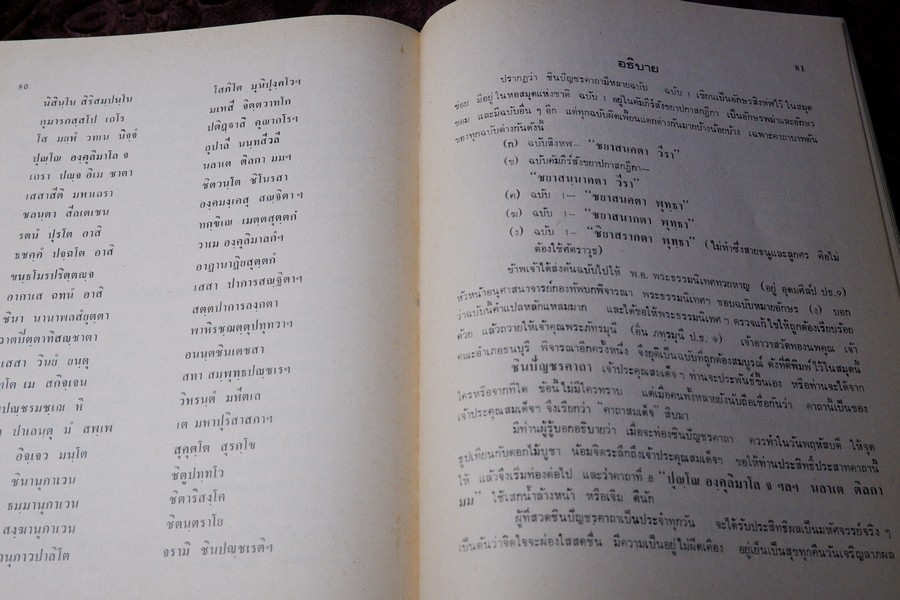 80
นิสินฺโน สิริสมฺปนฺโน โสภิโต มุนิปุงฺคโวฯ
กุมารกสฺสโป เถโร มเหสี จิตฺตวาทโก
โส มยฺหํ วทเน นิจฺจํ ปติฏฺฐาสิ คุณากโรฯ
ปุณฺโณ องฺคุลิมาโล จ อุปาลี นนฺทสีวลี
เถรา ปญฺจ อิเม ชาตา นลาเต ติลกา มมฯ
เสสาสีติ มหาเถรา ชิตวนฺโต ชิโนรสา
ชลนฺตา สีลเตเชน องฺคมงฺเคสุ สณฺฐิตาฯ
รตนํ ปุรโต อาสิ ทกฺขิเณ เมตฺตสุตฺตกํ
ธชคฺคํ ปจฺฉโต อาสิ วาเม องฺคุลิมาลกํฯ
ขนฺธโมรปริตฺตญฺจ อาฏานาฏิยสุตฺตกํ
อากาเส ฉทนํ อาสิ เสสา ปาการสณฺฐิตาฯ
ชินา นานาพลสํยุตฺตา สตฺตปาการลงฺกตา
วาตปิตฺตาทิสญฺชาตา พาหิรชฺฌตฺตุปทฺทวาฯ
เสสา วินยํ ยนฺตุ อนนฺตชินเตชสา
โต เม สกิจฺเจน สทา สมฺพุทฺธปญฺชเรฯ
ปญฺชรมชฺเฌ หิ วิหรนฺตํ มหีตเล
ปาเลนฺตุ มํ สพฺเพ เต มหาปุริสาสภาฯ
อิจฺเจว มนฺโต สุคุตฺโต สุรกฺโข
ชินานุภาเวน ชิตูปทฺทโว
ธมฺมานุภาเวน ชิตาริสงฺโค
สงฺฆานุภาเวน ชิตนฺตราโย
านุภาวปาลิโต จรามิ ชินปญฺชเรติฯ
81
อธิบาย
ปรากฏว่า ชินบัญชรคาถามีหลายฉบับ ฉบับ 1 เขียนเป็นอักษรสิงหฬไว้ในสมุด
ข่อย มีอยู่ในหอสมุดแห่งชาติ ฉบับ 1 อยู่ในคัมภีร์สังขยาปกาสกฎีกา เป็นอักษรพม่าและอักษร
ขอม และมีฉบับอื่น ๆ อีก แต่ทุกฉบับผิดเพี้ยนแตกต่างกันมากบ้างน้อยบ้าง เฉพาะคาถาบาทต้น
ของทุกฉบับต่างกันดังนี้
(ก) ฉบับสิงหฬ— “ชยาสนคตา วีรา”
(ข) ฉบับคัมภีร์สังขยาปกาสกฎีกา—
“ชยาสนฺนาคตา วีรา”
(ค) ฉบับ 1— “ชยาสนคตา พุทฺธา”
(ฆ) ฉบับ 1— “ชยาสนากตา พุทฺธา”
(ง) ฉบับ 1— “ชิยาสรากตา พุทฺธา” (ไม่ทำซึ่งสายธนูและลูกศร คือไม่
ต้องใช้ศัตราวุธ)
ข้าพเจ้าได้ส่งต้นฉบับไปให้ พ.อ. พระธรรมนิเทศทวยหาญ (อยู่ อุดมศิลป์ ปธ.๑)
หัวหน้าอนุศาสนาจารย์กองทัพบกพิจารณา พระธรรมนิเทศฯ ชอบฉบับหมายอักษร (ง) บอก
ว่าฉบับนี้คำแปลหลักแหลมมาก และได้ขอให้พระธรรมนิเทศ ฯ ตรวจแก้ไขให้ถูกต้องเรียบร้อย
ด้วย แล้วถวายให้เจ้าคุณพระภัทรมุนี (อิ๋น ภทฺรมุนี ป.ธ. ๑) เจ้าอาวาสวัดทองนพคุณ เจ้า
คณะอำเภอธนบุรี พิจารณาอีกครั้งหนึ่ง จึงยุติเป็นฉบับที่ถูกต้องสมบูรณ์ ดังที่ตีพิมพ์ไว้ในสมุดนี้
ชินบัญชรคาถา เจ้าประคุณสมเด็จ ฯ ท่านจะประพันธ์ขึ้นเอง หรือท่านจะได้จาก
ใครหรือจากที่ใด ข้อนี้ไม่มีใครทราบ แต่เมื่อคนทั้งหลายยังนับถือเชื่อกันว่า คาถานี้เป็นของ
เจ้าประคุณสมเด็จฯ จึงเรียกว่า “คาถาสมเด็จ” สืบมา
มีท่านผู้รู้บอกอธิบายว่า เมื่อจะท่องชินบัญชรคาถา ควรทำในวันพฤหัสบดี ให้จุด
ธูปเทียนกับดอกไม้บูชา น้อมจิตระลึกถึงเจ้าประคุณสมเด็จฯ ขอให้ท่านประสิทธิ์ประสาทคาถานี้
ให้ แล้วจึงเริ่มท่องต่อไป และว่าคาถาที่ 8 “ปุณฺโณ องฺคุลิมาโล จ ฯลฯ นลาเต ติลกา
มม” ใช้เสกน้ำล้างหน้า หรือเจิม ดีนัก
ผู้ที่สวดชินบัญชรคาถาเป็นประจำทุกวัน จะได้รับประสิทธิผลเป็นมหัศจรรย์จริง ๆ
เป็นต้นว่าจิตใจจะผ่องใสสดชื่น มีความเป็นอยู่ไม่ฝืดเคือง อยู่เย็นเป็นสุขทุกคืนวันเจริญลาภผล